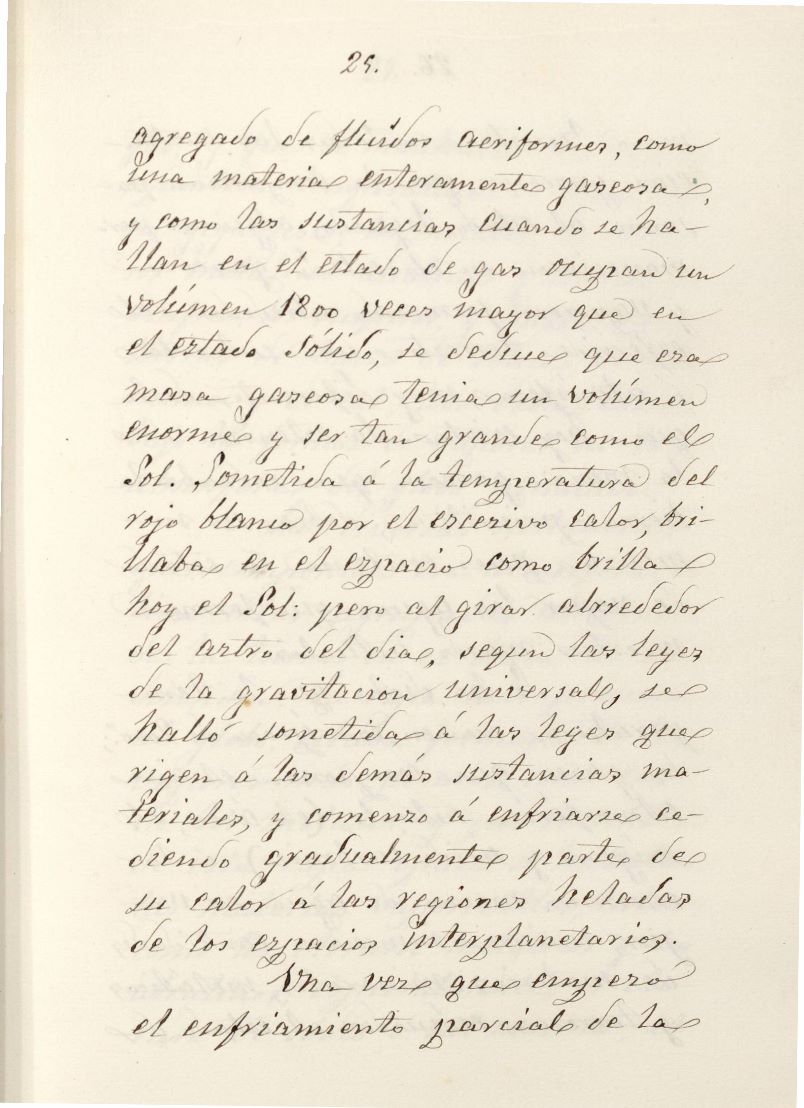 25.
agregado de fluidos aeriformes, como
una materia enteramente gaseosa,
y como las sustancias cuando se ha-
llan en el estado de gas ocupan un
volúmen 1800 veces mayor que en
el estado sólido, se deduce que esa
masa gaseosa tenia un volúmen
enorme y ser tan grande como el
Sol. Sometida á la temperatura del
rojo blanco por el escesivo calor, bri-
llaba en el espacio como brilla
hoy el Sol: pero al girar alrrededor
del astro del dia, segun las leyes
de la gravitacion universal, se
halló sometida á las leyes que
rigen á las demás sustancias ma-
teriales, y comenzo á enfriarse ce-
diendo gradualmente parte de
su calor á las regiones heladas
de los espacios interplanetarios.
Una vez que empezó
el enfriamiento parcial de la